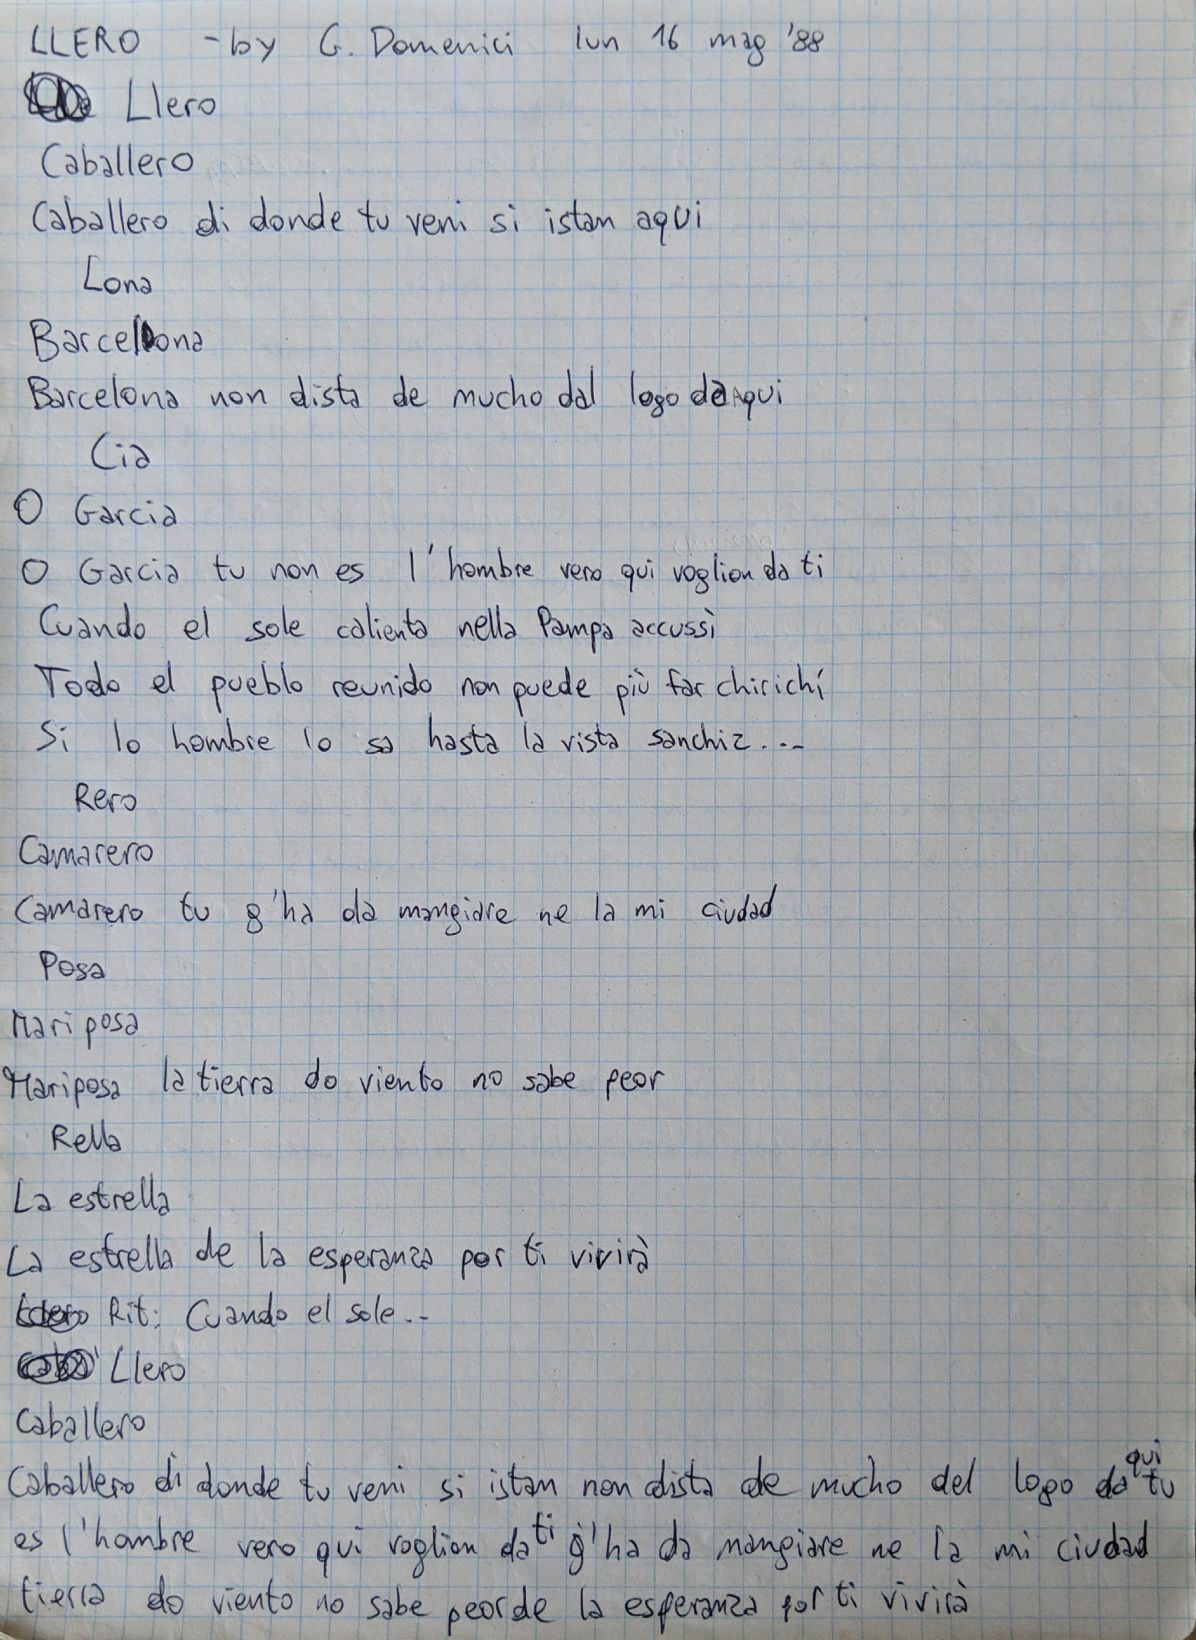 LLERO - by G. Domenici lun 16 mag '88
Llero
Caballero
Caballero di donde tu veni si istan aqui
Lona
Barcelona
Barcelona non dista de mucho dal logo da qui
Cia
O Garcia
O Garcia tu non es l'hombre vero qui voglion da ti
Cuando el sole calienta nella Pampa accussì
Todo el pueblo reunido non puede più far chirichí
Si lo hombre lo sa hasta la vista sanchiz...
Rero
Camarero
Camarero tu g'ha da mangiare ne la mi ciudad
Posa
Mariposa
Mariposa la tierra do viento no sabe peor
Rella
La estrella
La estrella de la esperanza por ti vivirà
Rit: Cuando el sole..
Llero
Caballero
Caballero di donde tu veni si istan non dista de mucho del logo da qui tu
es l'hombre vero qui voglion da ti g'ha da mangiare ne la mi ciudad
tierra do viento no sabe peor de la esperanza por ti vivirà